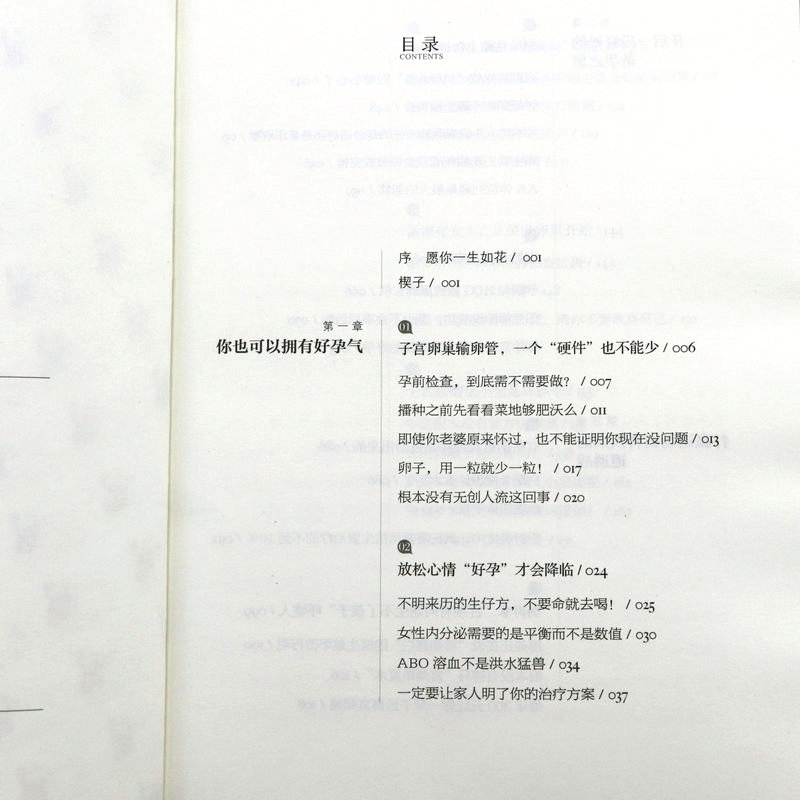 目录
CONTENTS
序 愿你一生如花 / 001
楔子 / 001
第一章
你也可以拥有好孕气
01
子宫卵巢输卵管，一个“硬件”也不能少 / 006
孕前检查，到底需不需要做？ / 007
播种之前先看看菜地够肥沃么 / 011
即使你老婆原来怀过，也不能证明你现在没问题 / 013
卵子，用一粒就少一粒！ / 017
根本没有无创人流这回事 / 020
02
放松心情“好孕”才会降临 / 024
不明来历的生仔方，不要命就去喝！ / 025
女性内分泌需要的是平衡而不是数值 / 030
ABO 溶血不是洪水猛兽 / 034
一定要让家人明了你的治疗方案 / 037